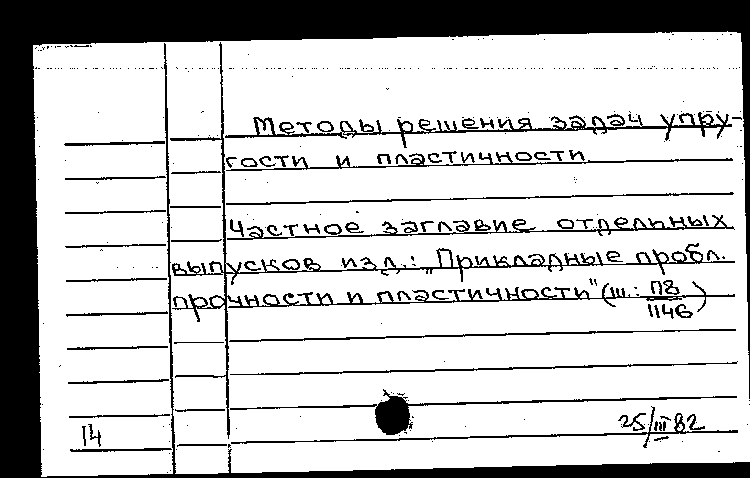 Методы решения задач упру-
гости и пластичности
Частное заглавие отдельных
выпусков изд.: „Прикладные пробл.
прочности и пластичности" (ш.: П8
1146)
14
25/III 82